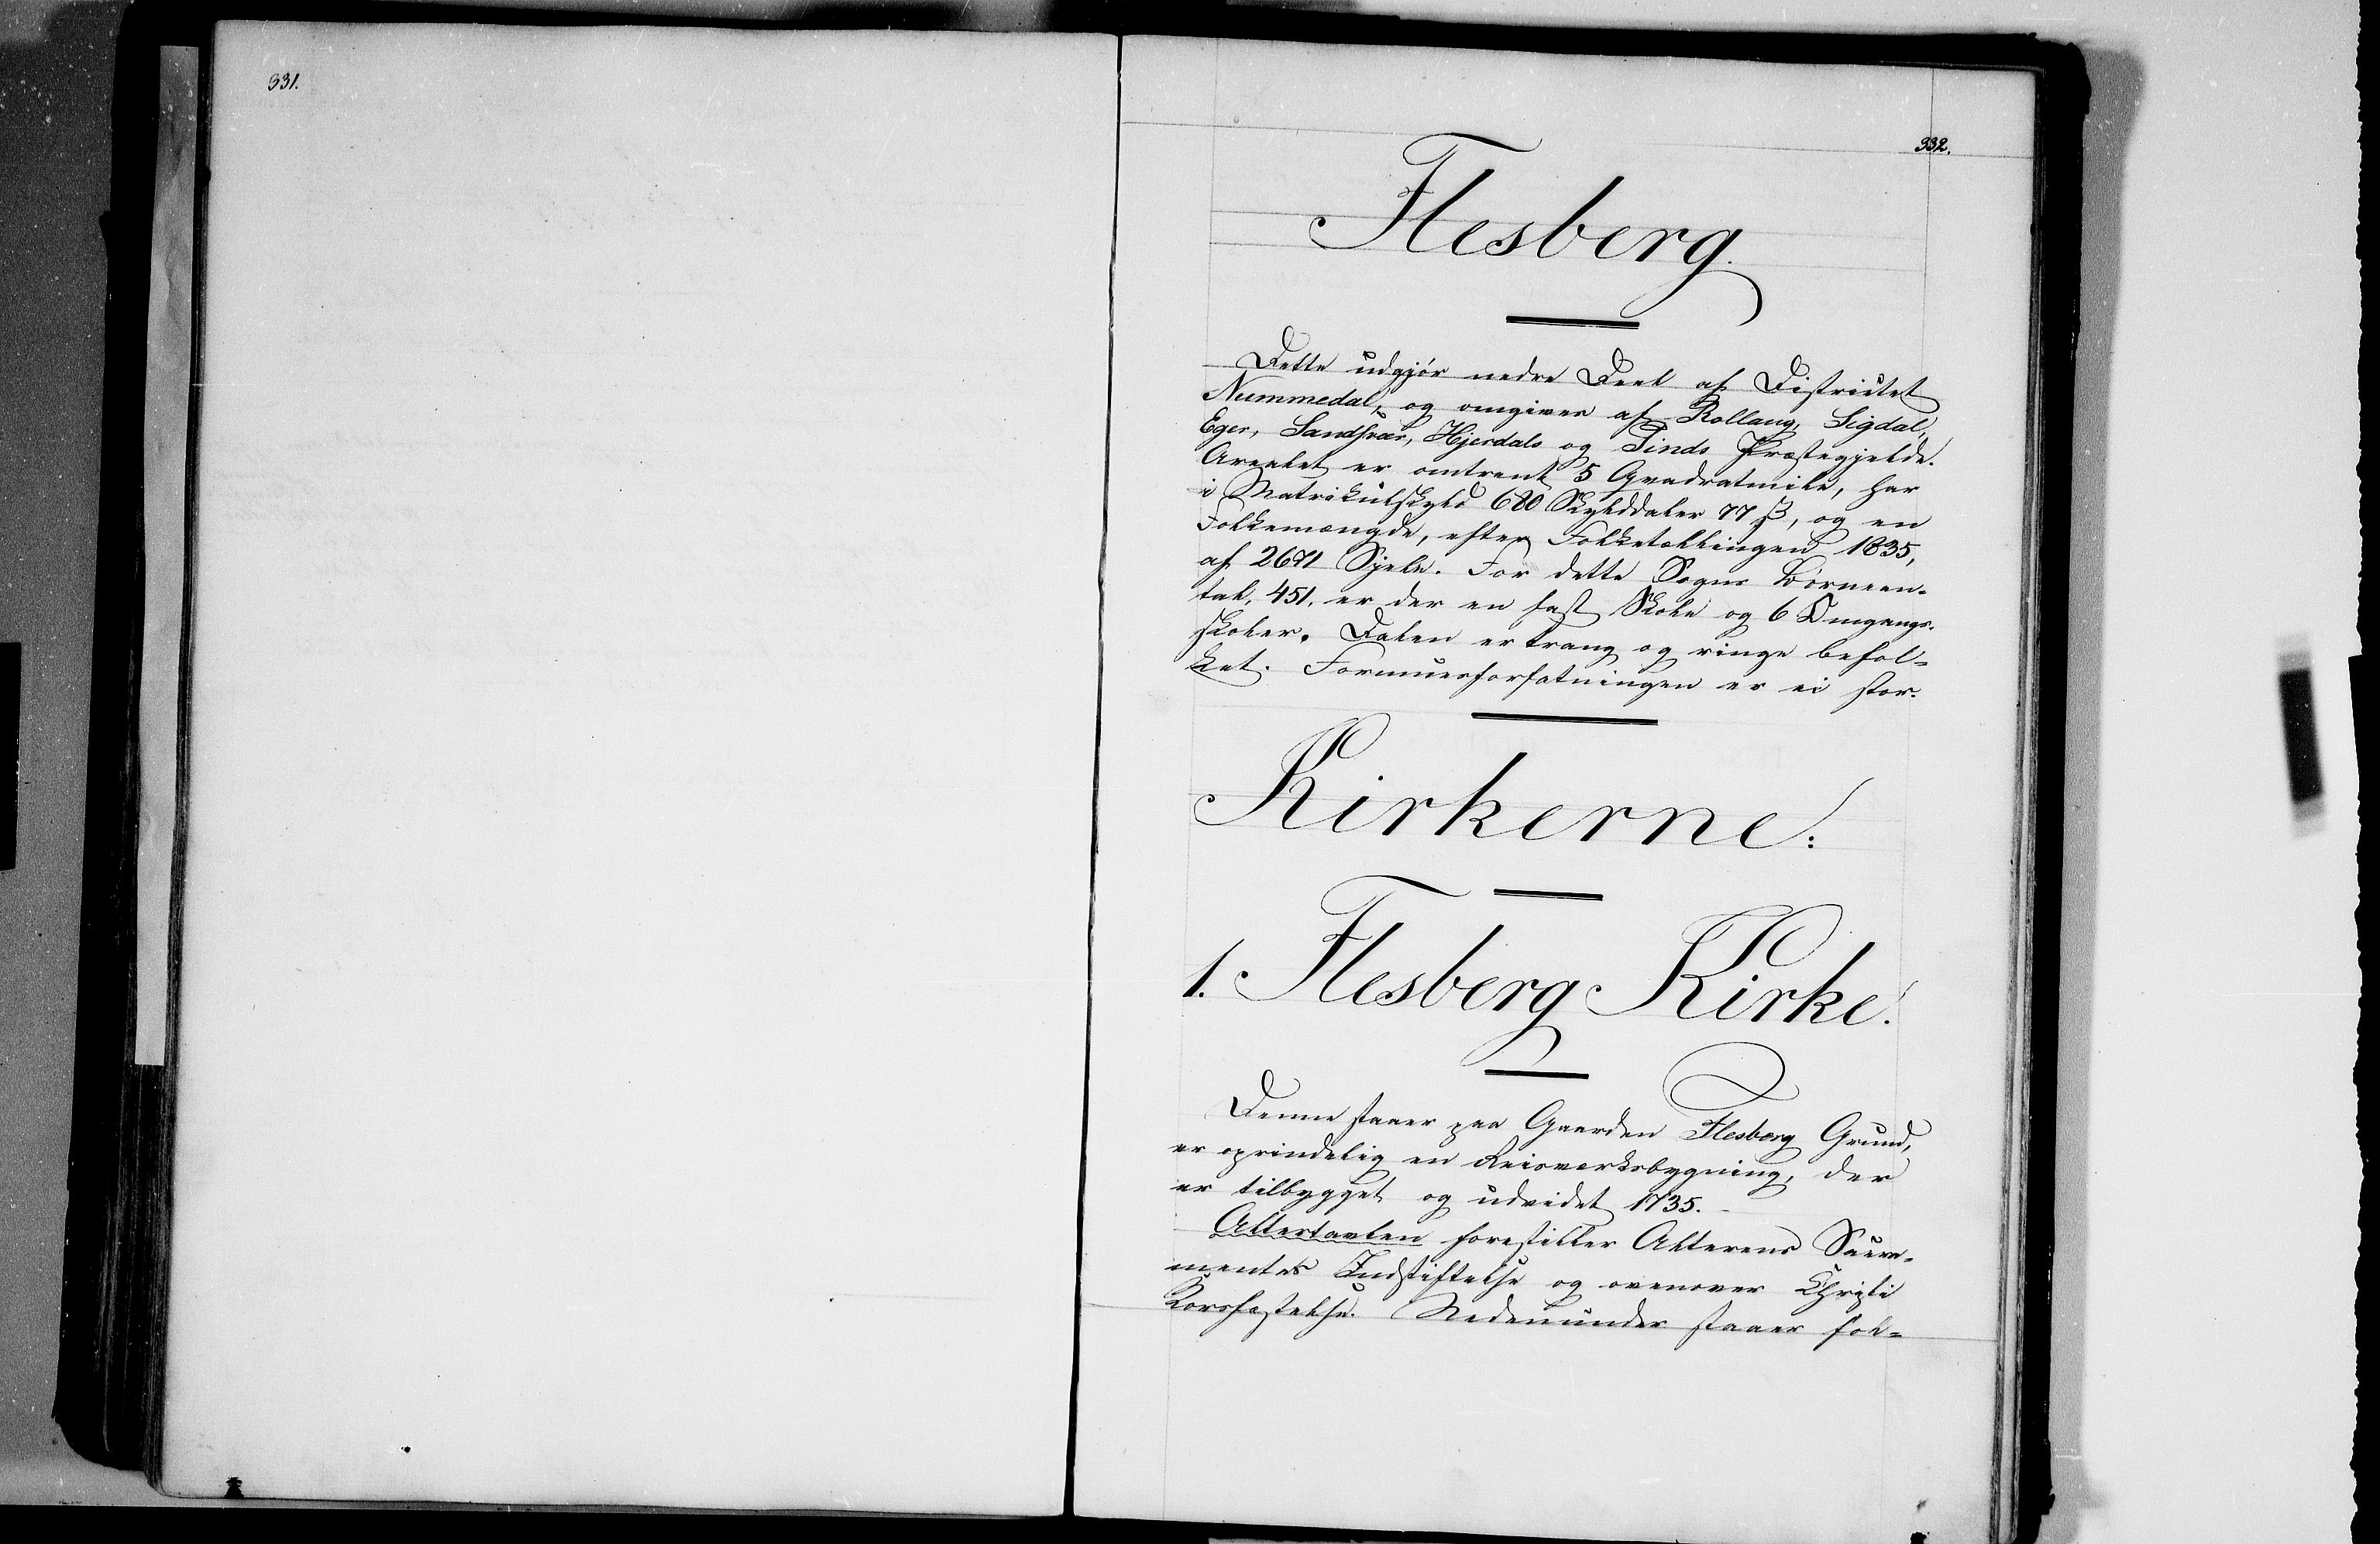 331.
332.
Flesberg.
Dette udgjör nedre Deel af Districtet
Nummedal, og omgives af Rollaug, Sigdal,
Eger, Sandsvær, Hjerdals og Tinds Præstegjelde.
Arealet er omtrent 5 Qvadratmile, har
i Matrikulskyld 680 Skylddaler 77 ß, og en
Folkemængde, efter Folketællingen 1835,
af 2671 Sjele. For dette Sogns Börneen-
tal, 451, er der en fast Skole og 6 Omgangs-
skoler. Dalen er trang og ringe befol-
ket. Formuesforfatningen er ei stor.
Kirkerne:
1. Flesberg Kirke.
Denne staaer paa Gaarden Flesberg Grund,
er oprindelig en Reisværksbygning, der
er tilbygget og udvidet 1735.
Altertavlen forestiller Alterens Sacra-
mentes Indstiftelse og ovenover Christi
Korsfæstelse. Nedenunder staaer föl-